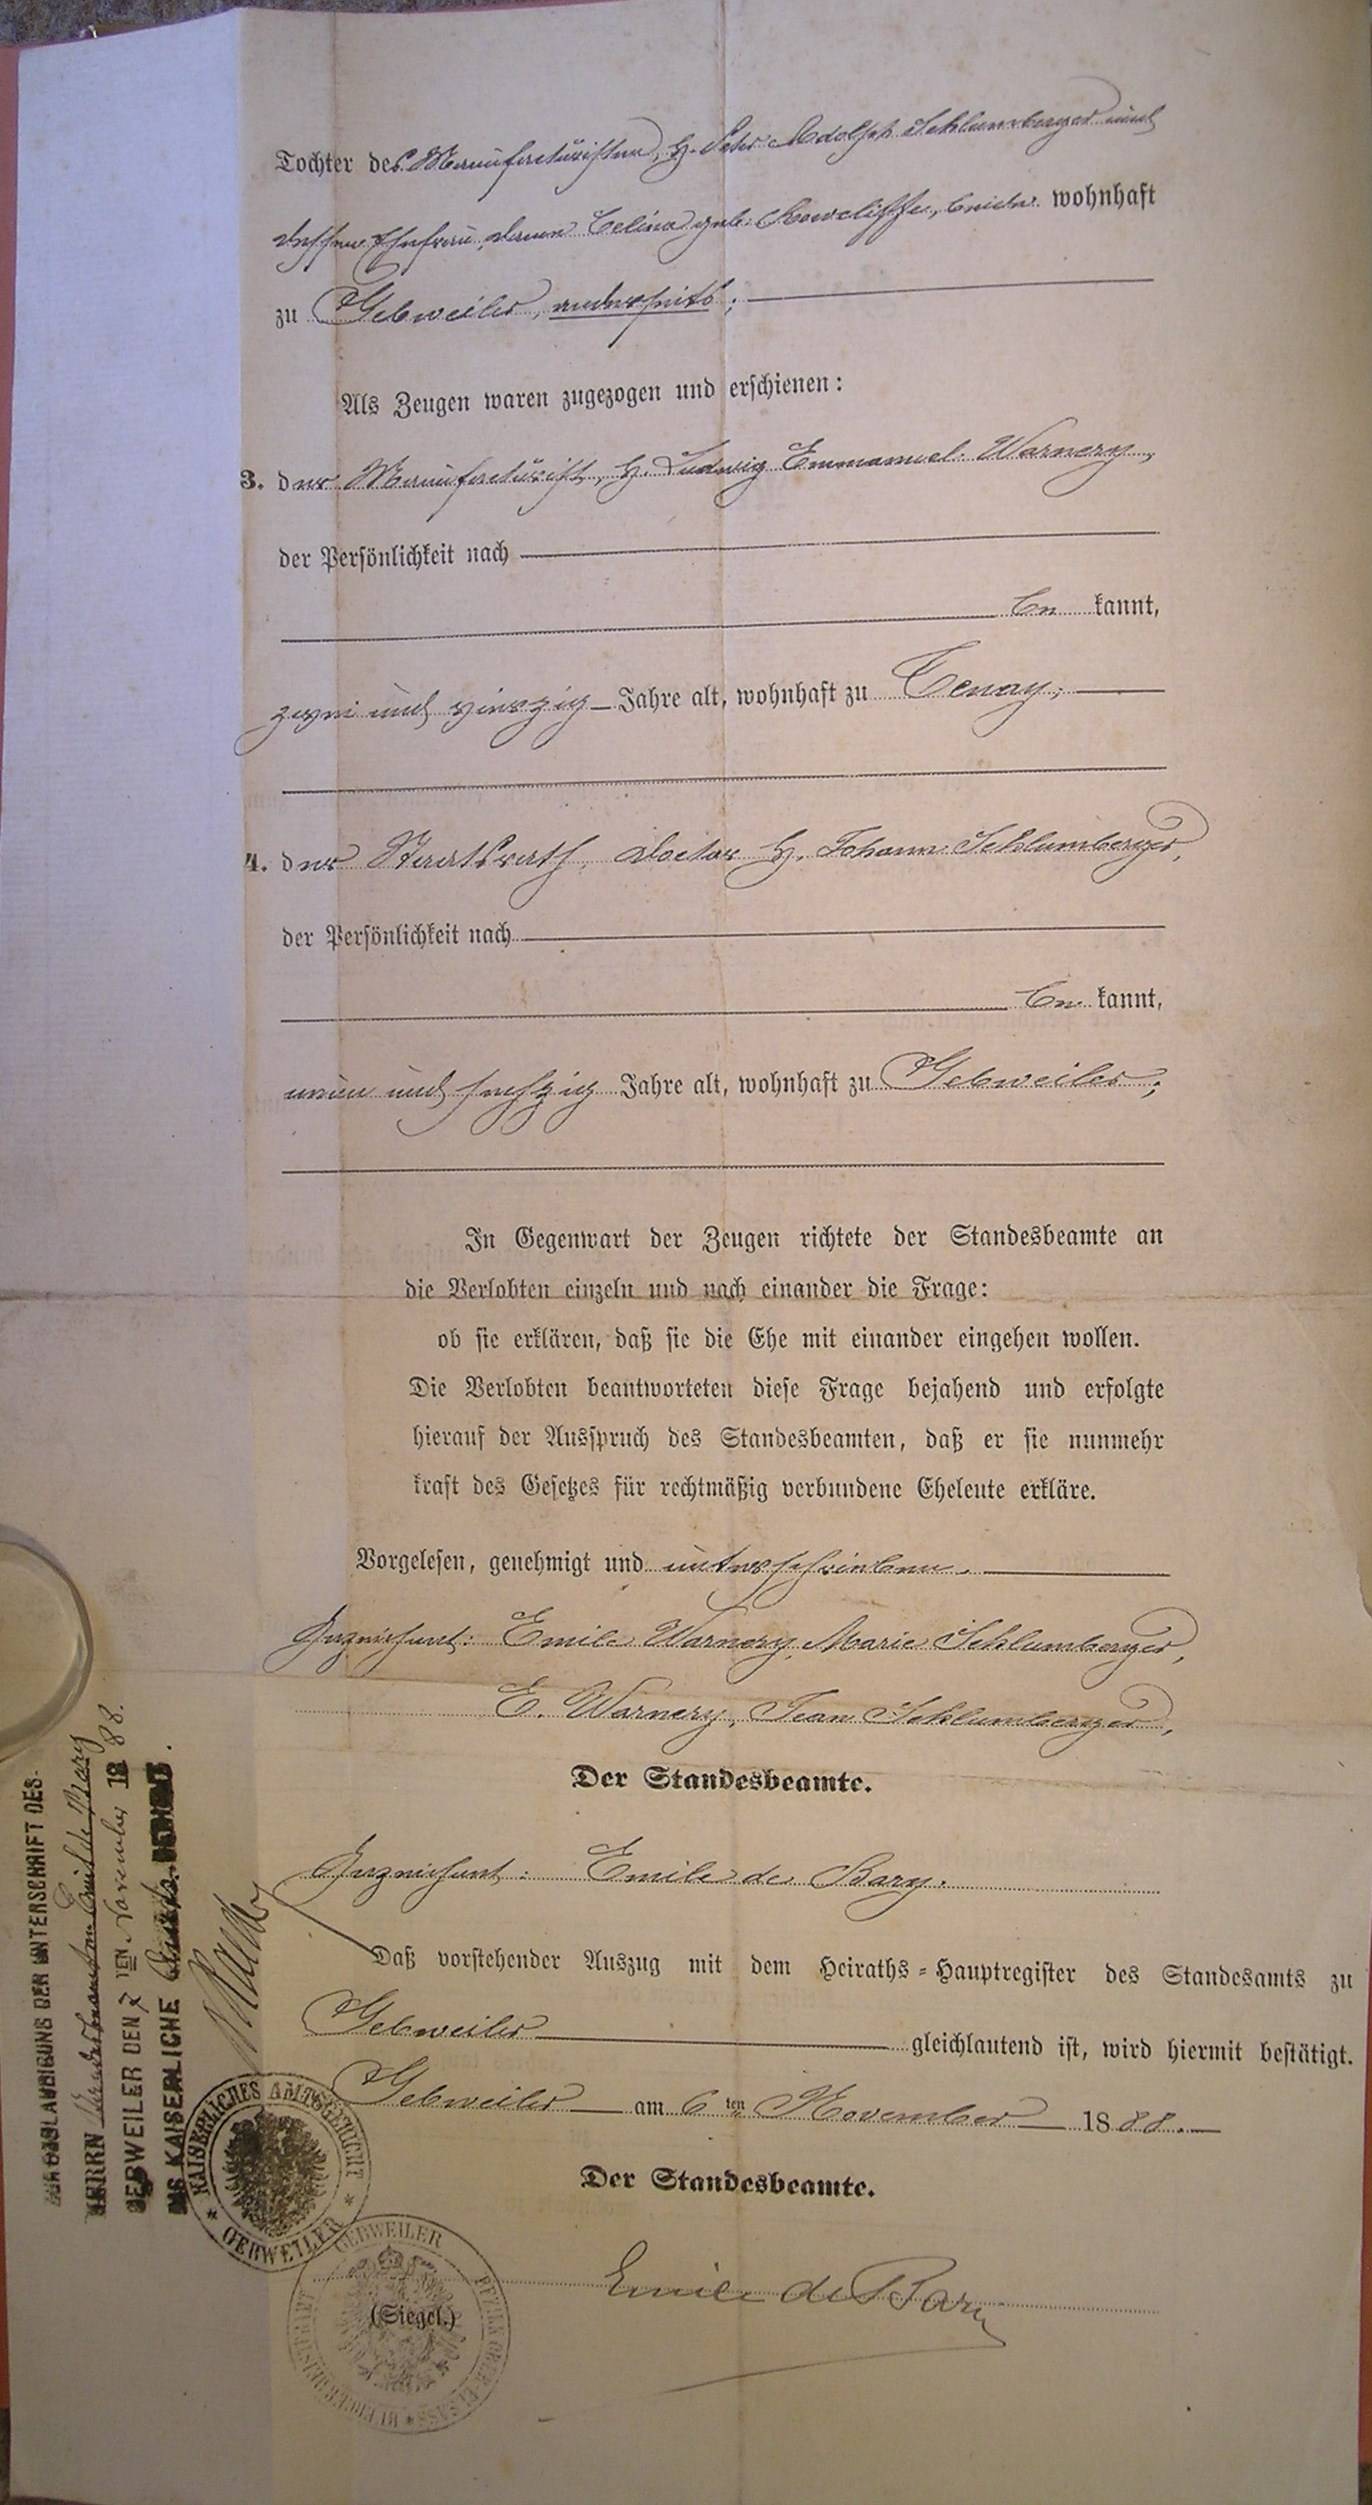 Tochter des Manufacturisten, H. Adolph Schlumberger und
dessen Ehefrau, dame Celina geb. beide wohnhaft
zu Gebweiler, anderseits;
Als Zeugen waren zugezogen und erschienen:
3. der Manufacturist, H. Ludwig Emmanuel Warnery,
der Persönlichkeit nach
be kannt,
zwei und vierzig Jahre alt, wohnhaft zu Tenay;
4. der Staatsrath, Doctor H. Johann Schlumberger,
der Persönlichkeit nach
be kannt,
neun und sechzig Jahre alt, wohnhaft zu Gebweiler;
In Gegenwart der Zeugen richtete der Standesbeamte an
die Verlobten einzeln und nach einander die Frage:
ob sie erklären, daß sie die Ehe mit einander eingehen wollen.
Die Verlobten beantworteten diese Frage bejahend und erfolgte
hierauf der Ausspruch des Standesbeamten, daß er sie nunmehr
kraft des Gesetzes für rechtmäßig verbundene Eheleute erkläre.
Vorgelesen, genehmigt und unterschrieben.
Gezeichnet: Emile Warnery, Marie Schlumberger,
E. Warnery, Jean Schlumberger,
Der Standesbeamte.
Gezeichnet: Emile de Bary.
Daß vorstehender Auszug mit dem Heiraths-Hauptregister des Standesamts zu
Gebweiler gleichlautend ist, wird hiermit bestätigt.
Gebweiler am 6 ten November 1888.
Der Standesbeamte.
Emile de Bary
(Siegel.)
GEBWEILER
BEZIRK OBER-ELSASS
BÜRGERMEISTERAMT
KAISERLICHES AMTSGERICHT
* GEBWEILER *
ZUR BEGLAUBIGUNG DER UNTERSCHRIFT DES
HERRN Emil de Bary
GEBWEILER DEN 7 TEN November 1888.
DAS KAISERLICHE